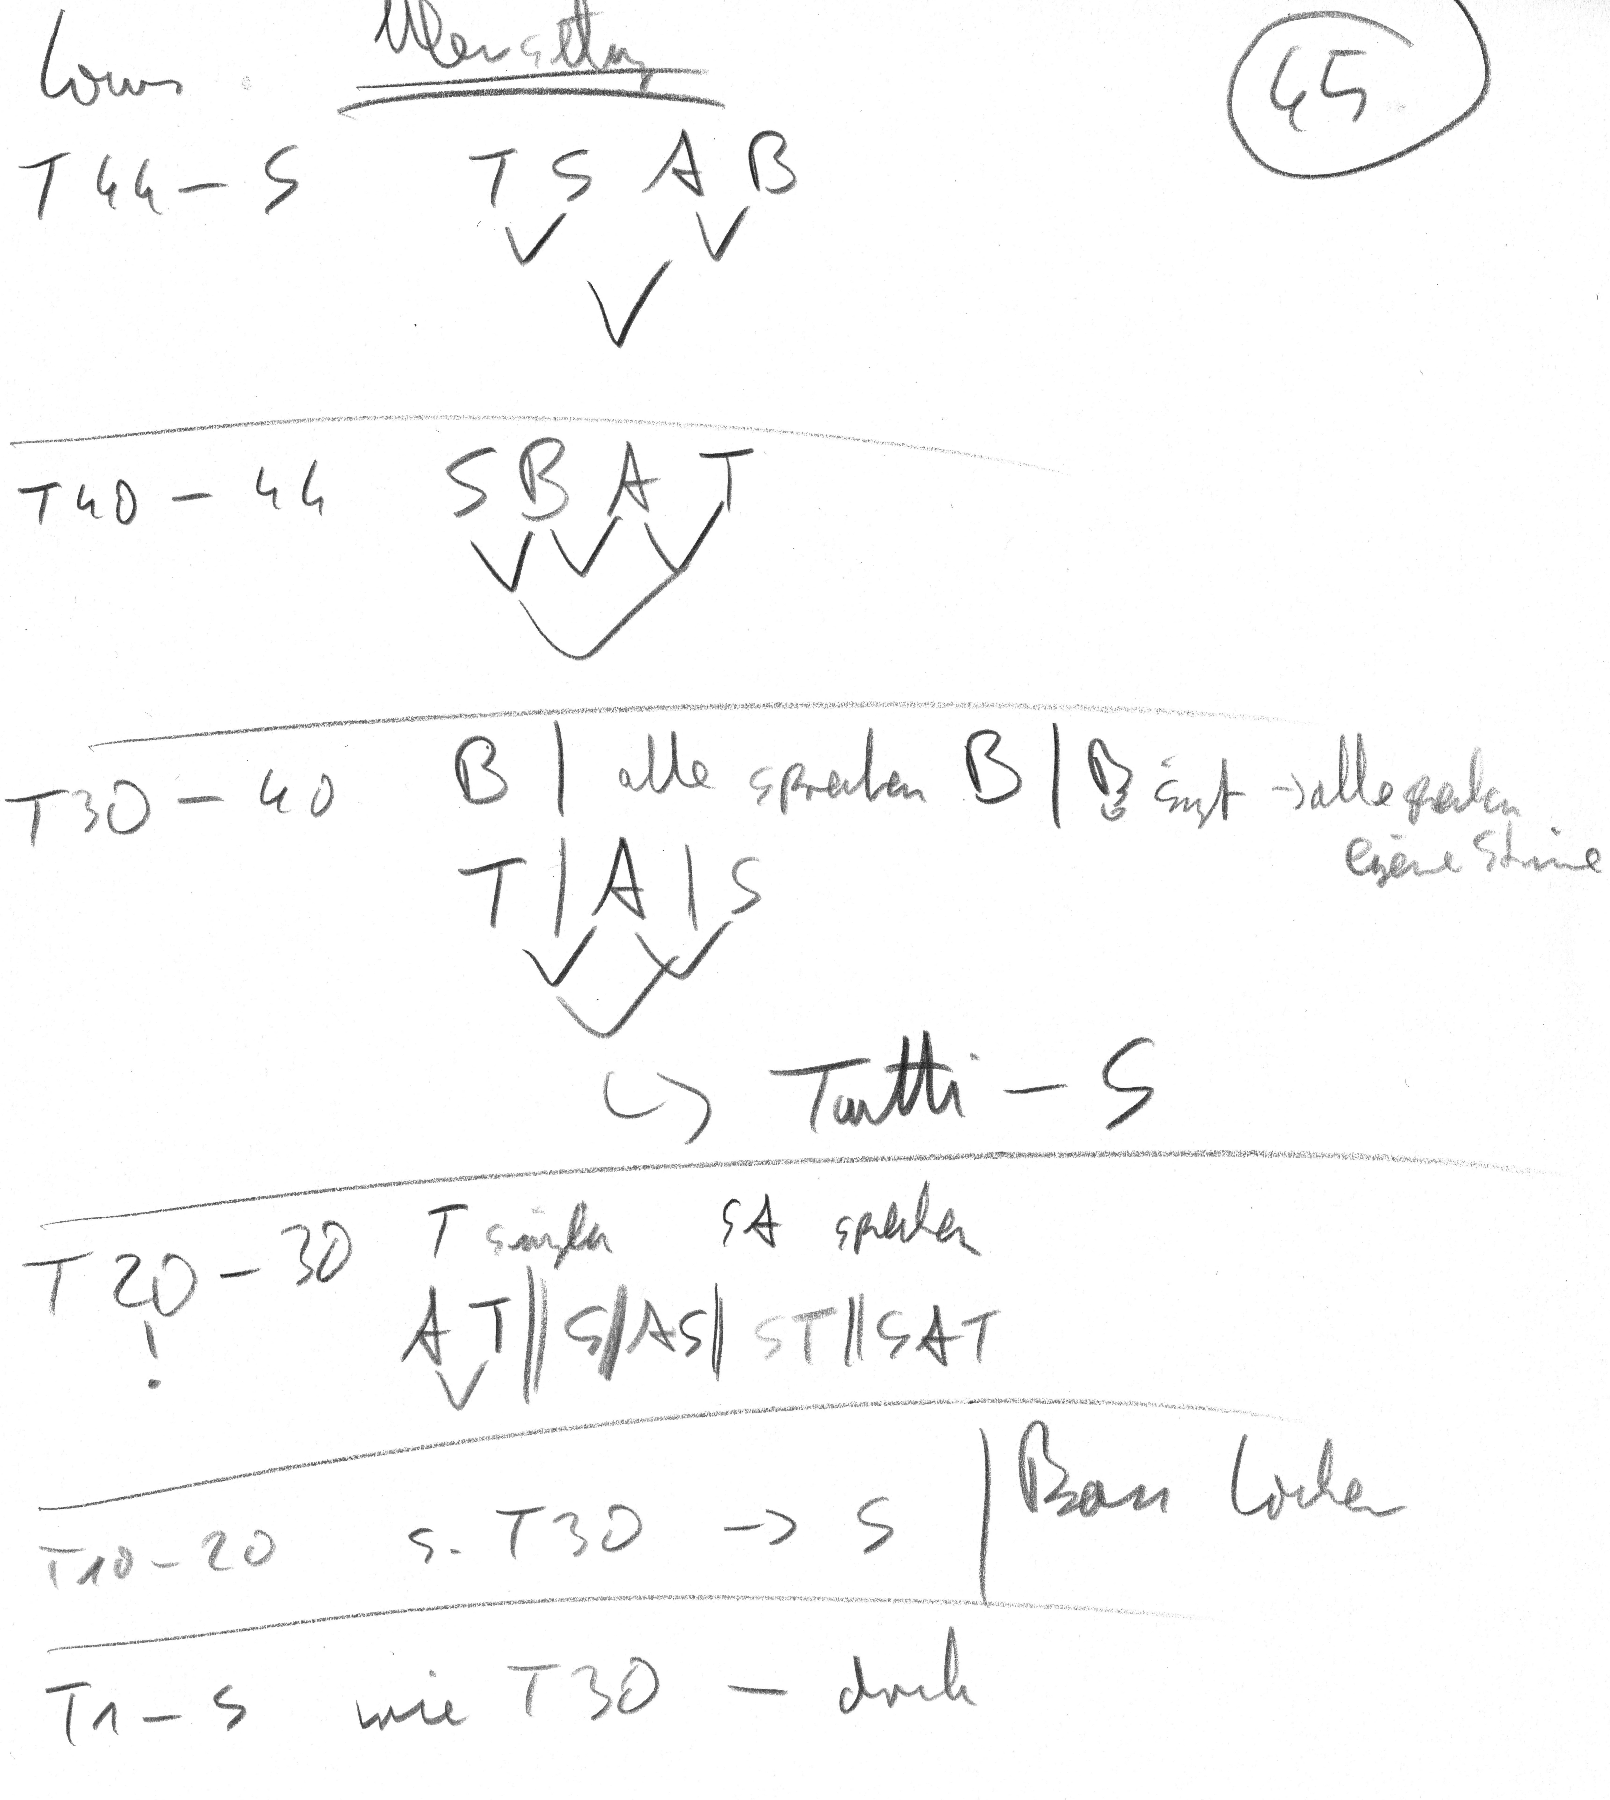 45
T 44 – S T S A B
T 40 – 44 S B A T
T 30 – 40 B | alle sprechen B | B singt → alle sprechen
eigene Stimme
T | A | S
↳ Tutti – S
T 20 – 30 T singen SA sprechen
! A T || S || AS | ST || SAT
T 10 – 20 s. T 30 → S | Bass locker
T 1 – S wie T 30 –